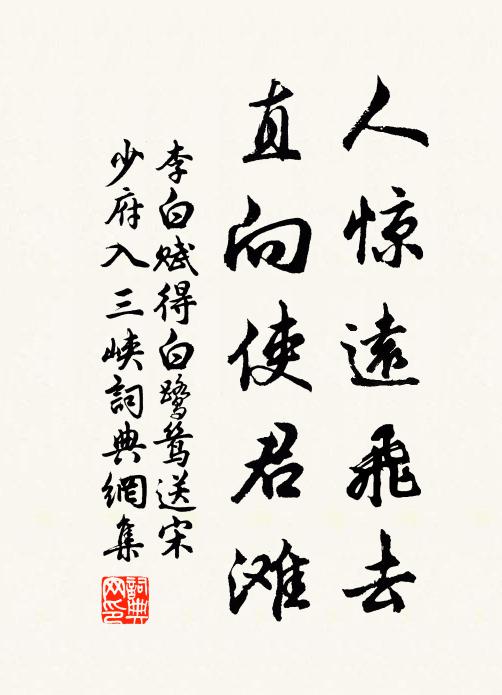 人惊遠飛去
直向使君滩
李白赋得白鹭鸶送宋
少府入三峡詞典網集
詞典网印